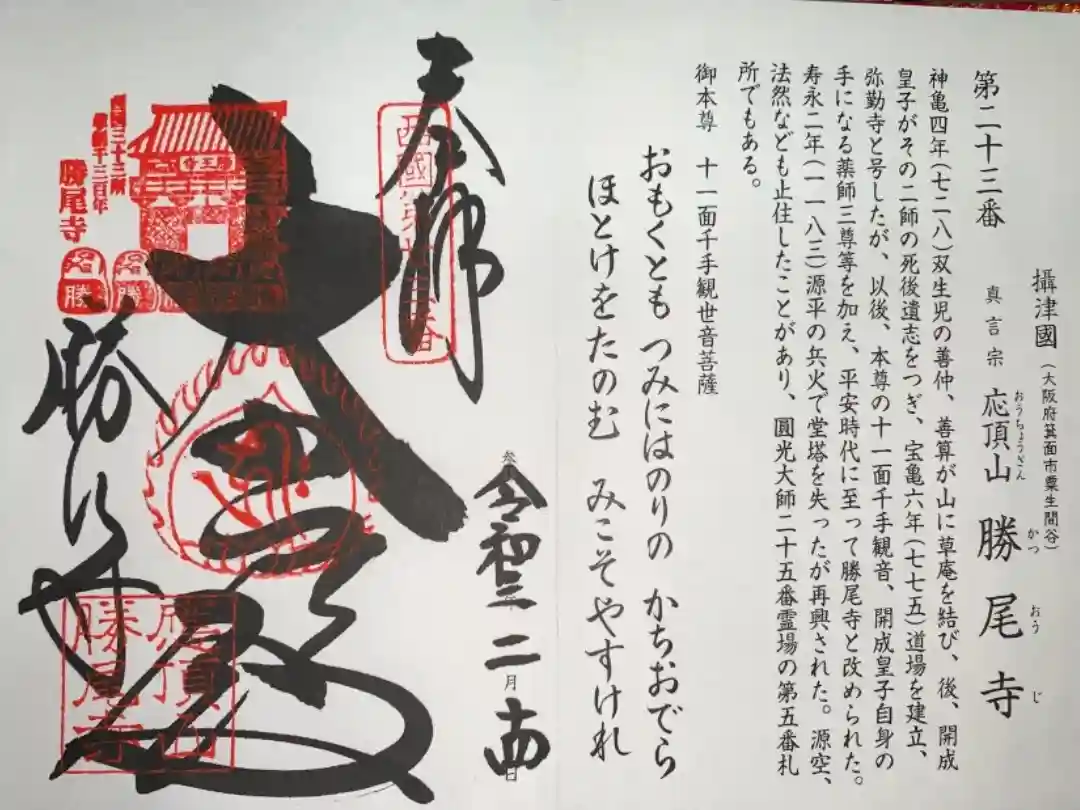 攝津國(大阪府箕面市粟生間谷)
真言宗 応頂山 勝尾寺
おうちょうざん かつ おう じ
第二十三番
神亀四年(七二八)双生児の善仲、善算が山に草庵を結び、後、開成
皇子がその二師の死後遺志をつぎ、宝亀六年(七七五)道場を建立、
弥勤寺と号したが、以後、本尊の十一面千手観音、開成皇子自身の
手になる薬師三尊等を加え、平安時代に至って勝尾寺と改められた。
寿永二年(一一八三)源平の兵火で堂塔を失ったが再興された。源空、
法然なども止住したことがあり、圓光大師二十五番霊場の第五番札
所でもある。
御本尊 十一面千手観世音菩薩
おもくとも つみにはのりの かちおでら
ほとけをたのむ みこそやすけれ
奉拝
令和三年二月十四日
大悲殿
勝尾寺
勝尾寺
應頂山
勝尾寺